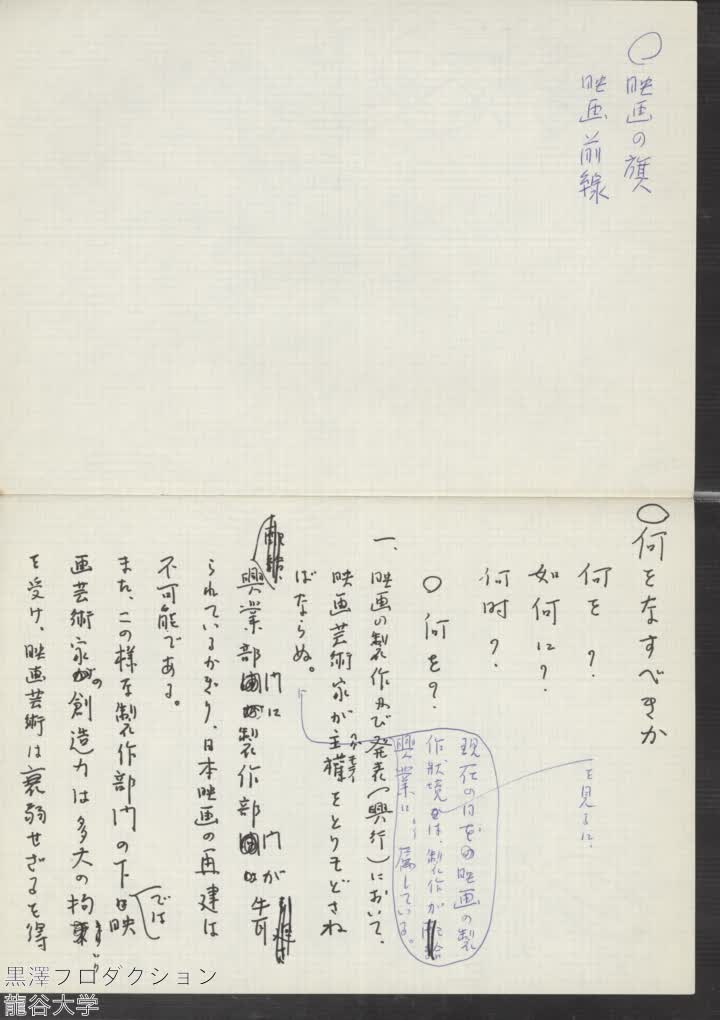 ○映画の旗
映画前線
○何をなすべきか
何を?
如何に?
何時?
○何を?
一、映画の製作及び発表(興行)において、
映画芸術家が主権をとりもどさね
ばならぬ。
現在の日本の映画の製
作状境は、製作が配給
興業に属している。
を見るに、
興業部門に製作部門が牛耳
られているかぎり、日本映画の再建は
不可能である。
また、この様な製作部門の下では映
画芸術家の創造力は多大の拘束
を受け、映画芸術は衰弱せざるを得
黒澤プロダクション
龍谷大学